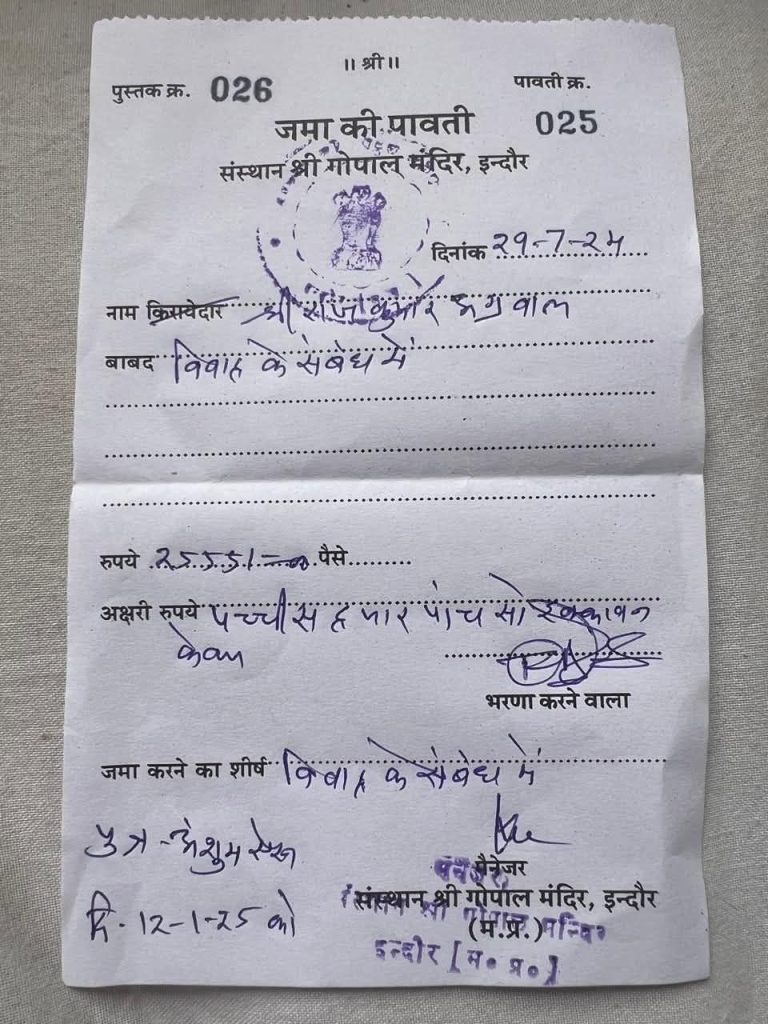 ॥ श्री ॥
पुस्तक क्र. 026 पावती क्र.
जमा की पावती 025
संस्थान श्री गोपाल मंदिर, इन्दौर
दिनांक २९-7-२४
नाम किरायेदार श्री राजकुमार अग्रवाल
बाबद विवाह के संबंध में
रुपये 25551 पैसे
अक्षरी रुपये पच्चीस हजार पांच सो इक्कावन
केवल
भरणा करने वाला
जमा करने का शीर्ष विवाह के संबंध में
पुत्र -
मैनेजर
संस्थान श्री गोपाल मंदिर, इन्दौर
दि. 12-1-25 को
(म.प्र.)
इन्दौर [म० प्र०]